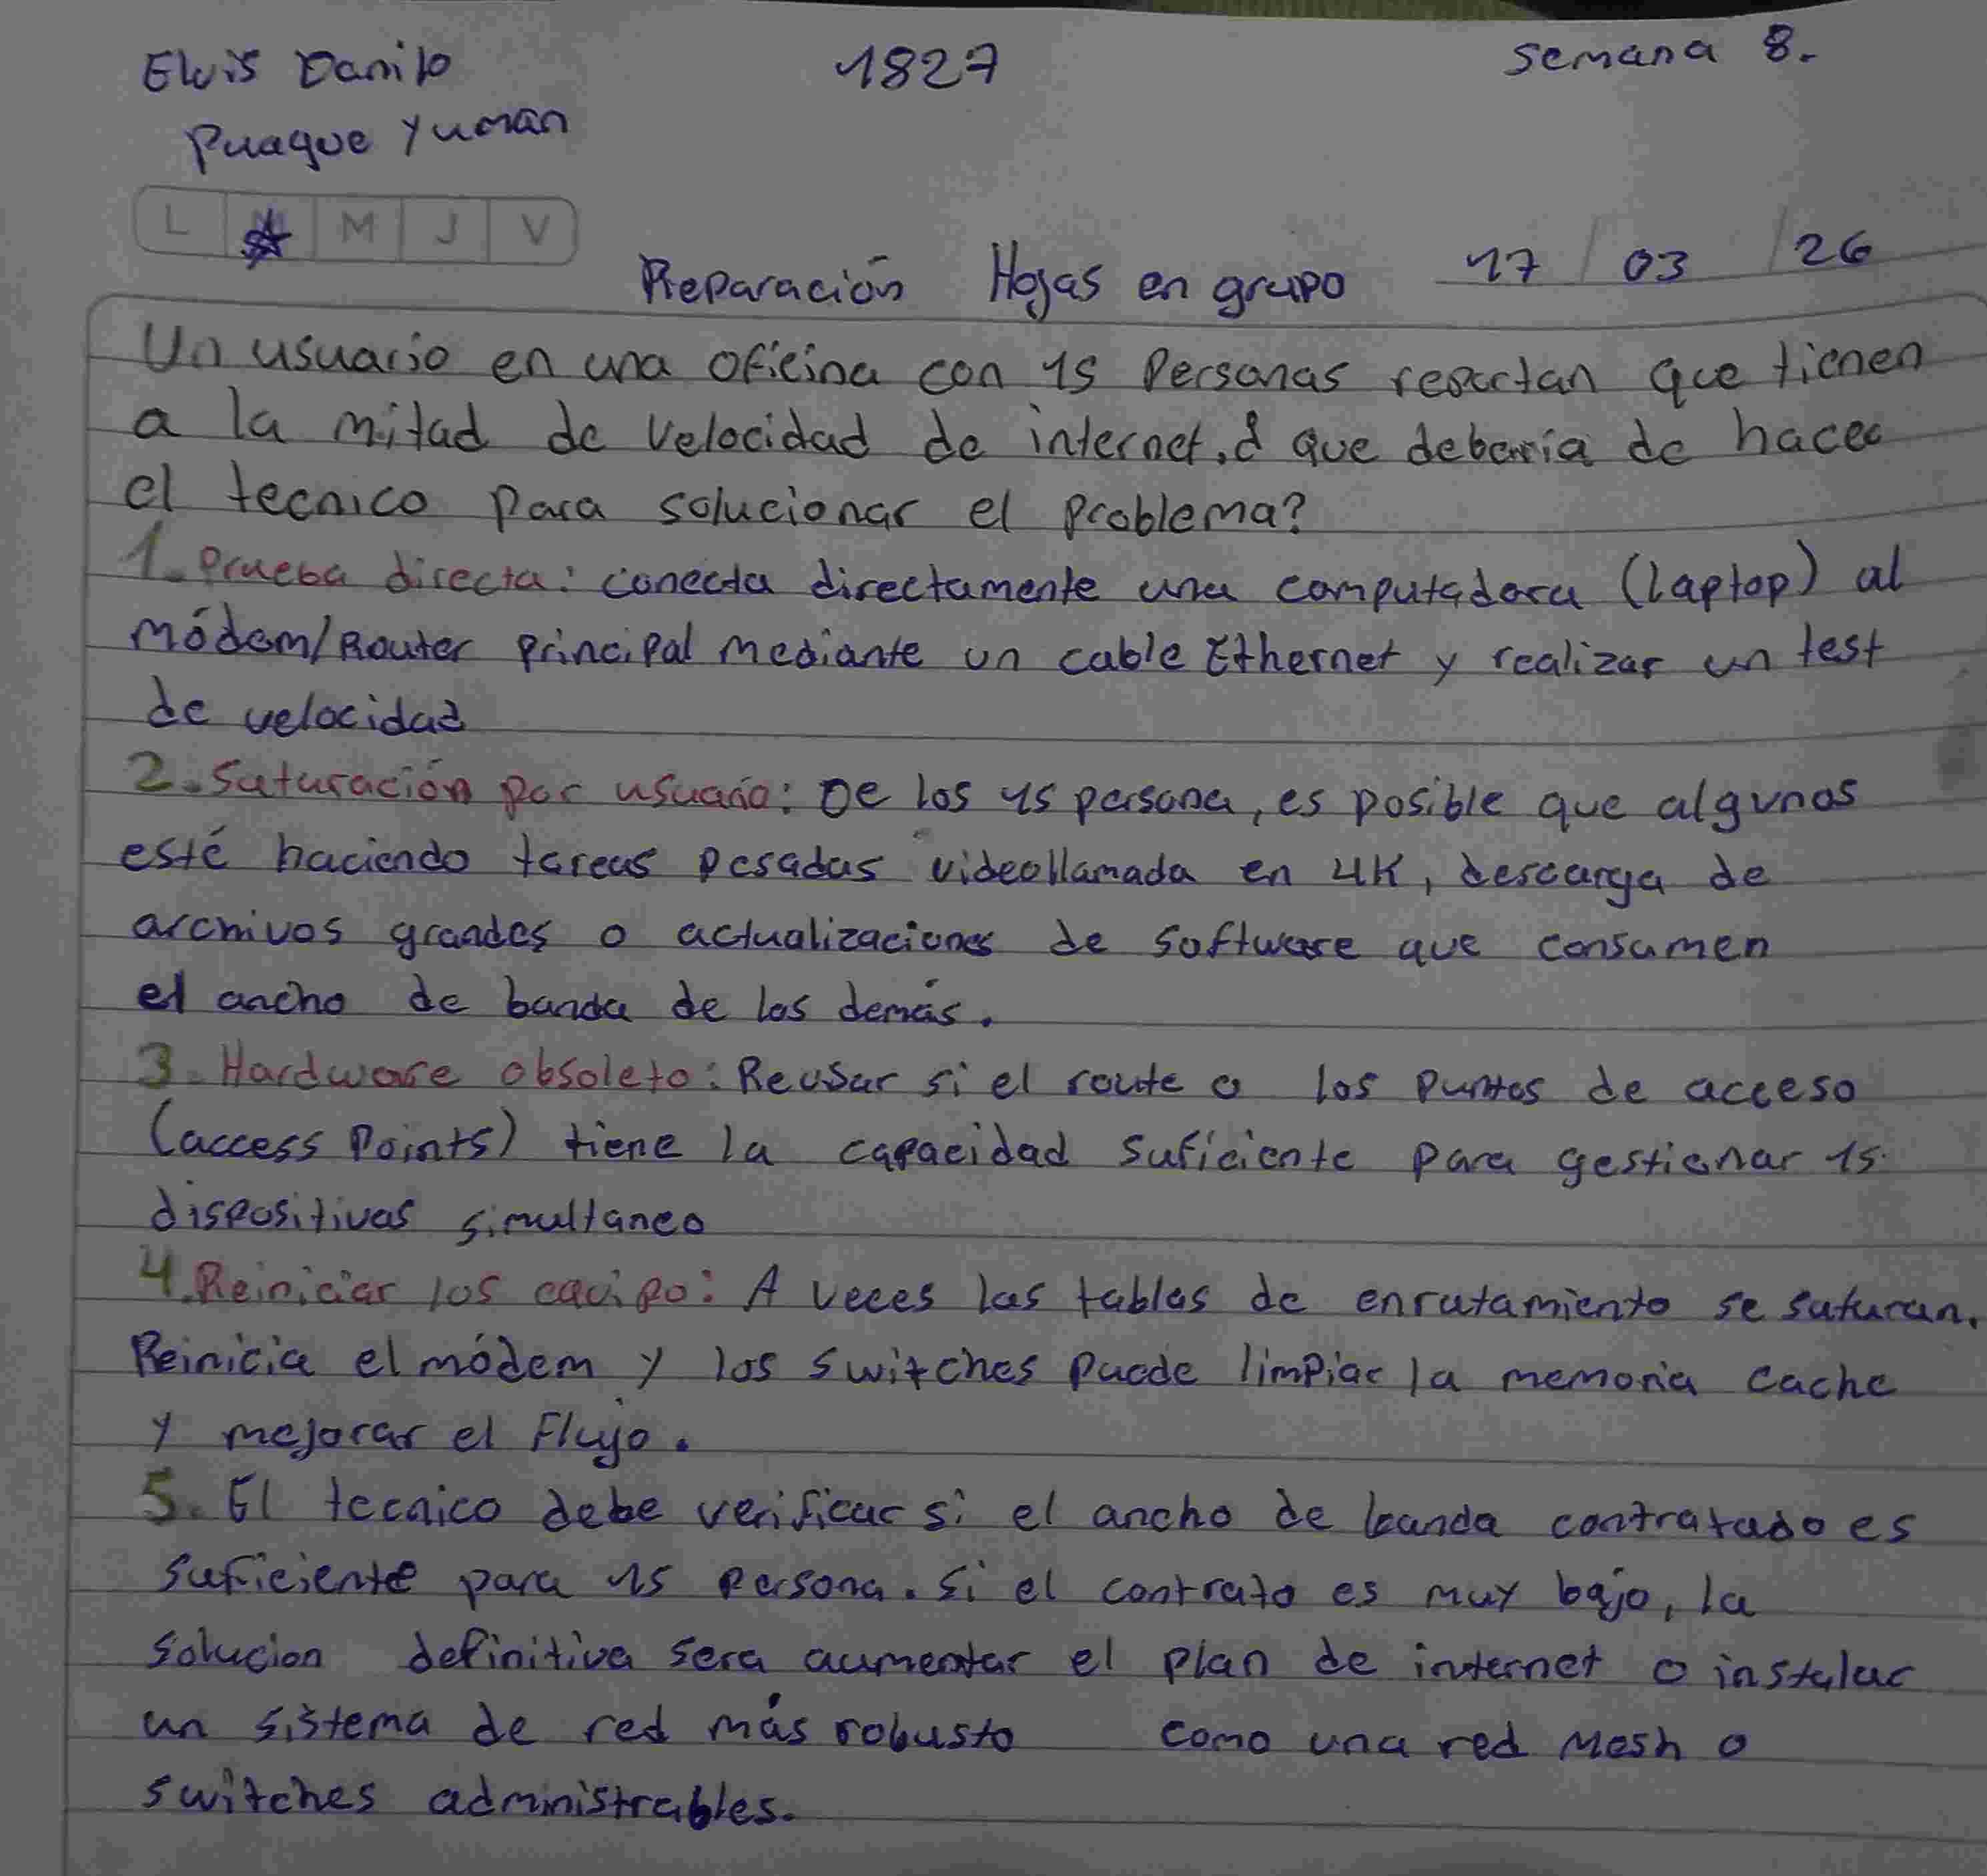 Elvis Danilo 1827 semana 8.
Puaque Yuman
L M J V
Reparación Hojas en grupo 17 / 03 / 26
Un usuario en una oficina con 15 Personas reportan que tienen
a la mitad de velocidad de internet, ¿ que debería de hacer
el tecnico para solucionar el problema?
1. Prueba directa: conecta directamente una computadora (laptop) al
módem/Router principal mediante un cable Ethernet y realizar un test
de velocidad
2. Saturación por usuario: De los 15 persona, es posible que algunos
esté haciendo tareas pesadas videollamada en 4K, descarga de
archivos grandes o actualizaciones de software que consumen
el ancho de banda de los demás.
3. Hardware obsoleto: Revisar si el route o los puntos de acceso
(access Points) tiene la capacidad suficiente para gestionar 15
dispositivos simultaneo
4. Reiniciar los equipo: A veces las tablas de enrutamiento se saturan.
Reinicia el módem y los switches puede limpiar la memoria cache
y mejorar el Flujo.
5. El tecnico debe verificar si el ancho de banda contratado es
suficiente para 15 persona. Si el contrato es muy bajo, la
solucion definitiva sera aumentar el plan de internet o instalar
un sistema de red más robusto como una red Mesh o
switches administrables.